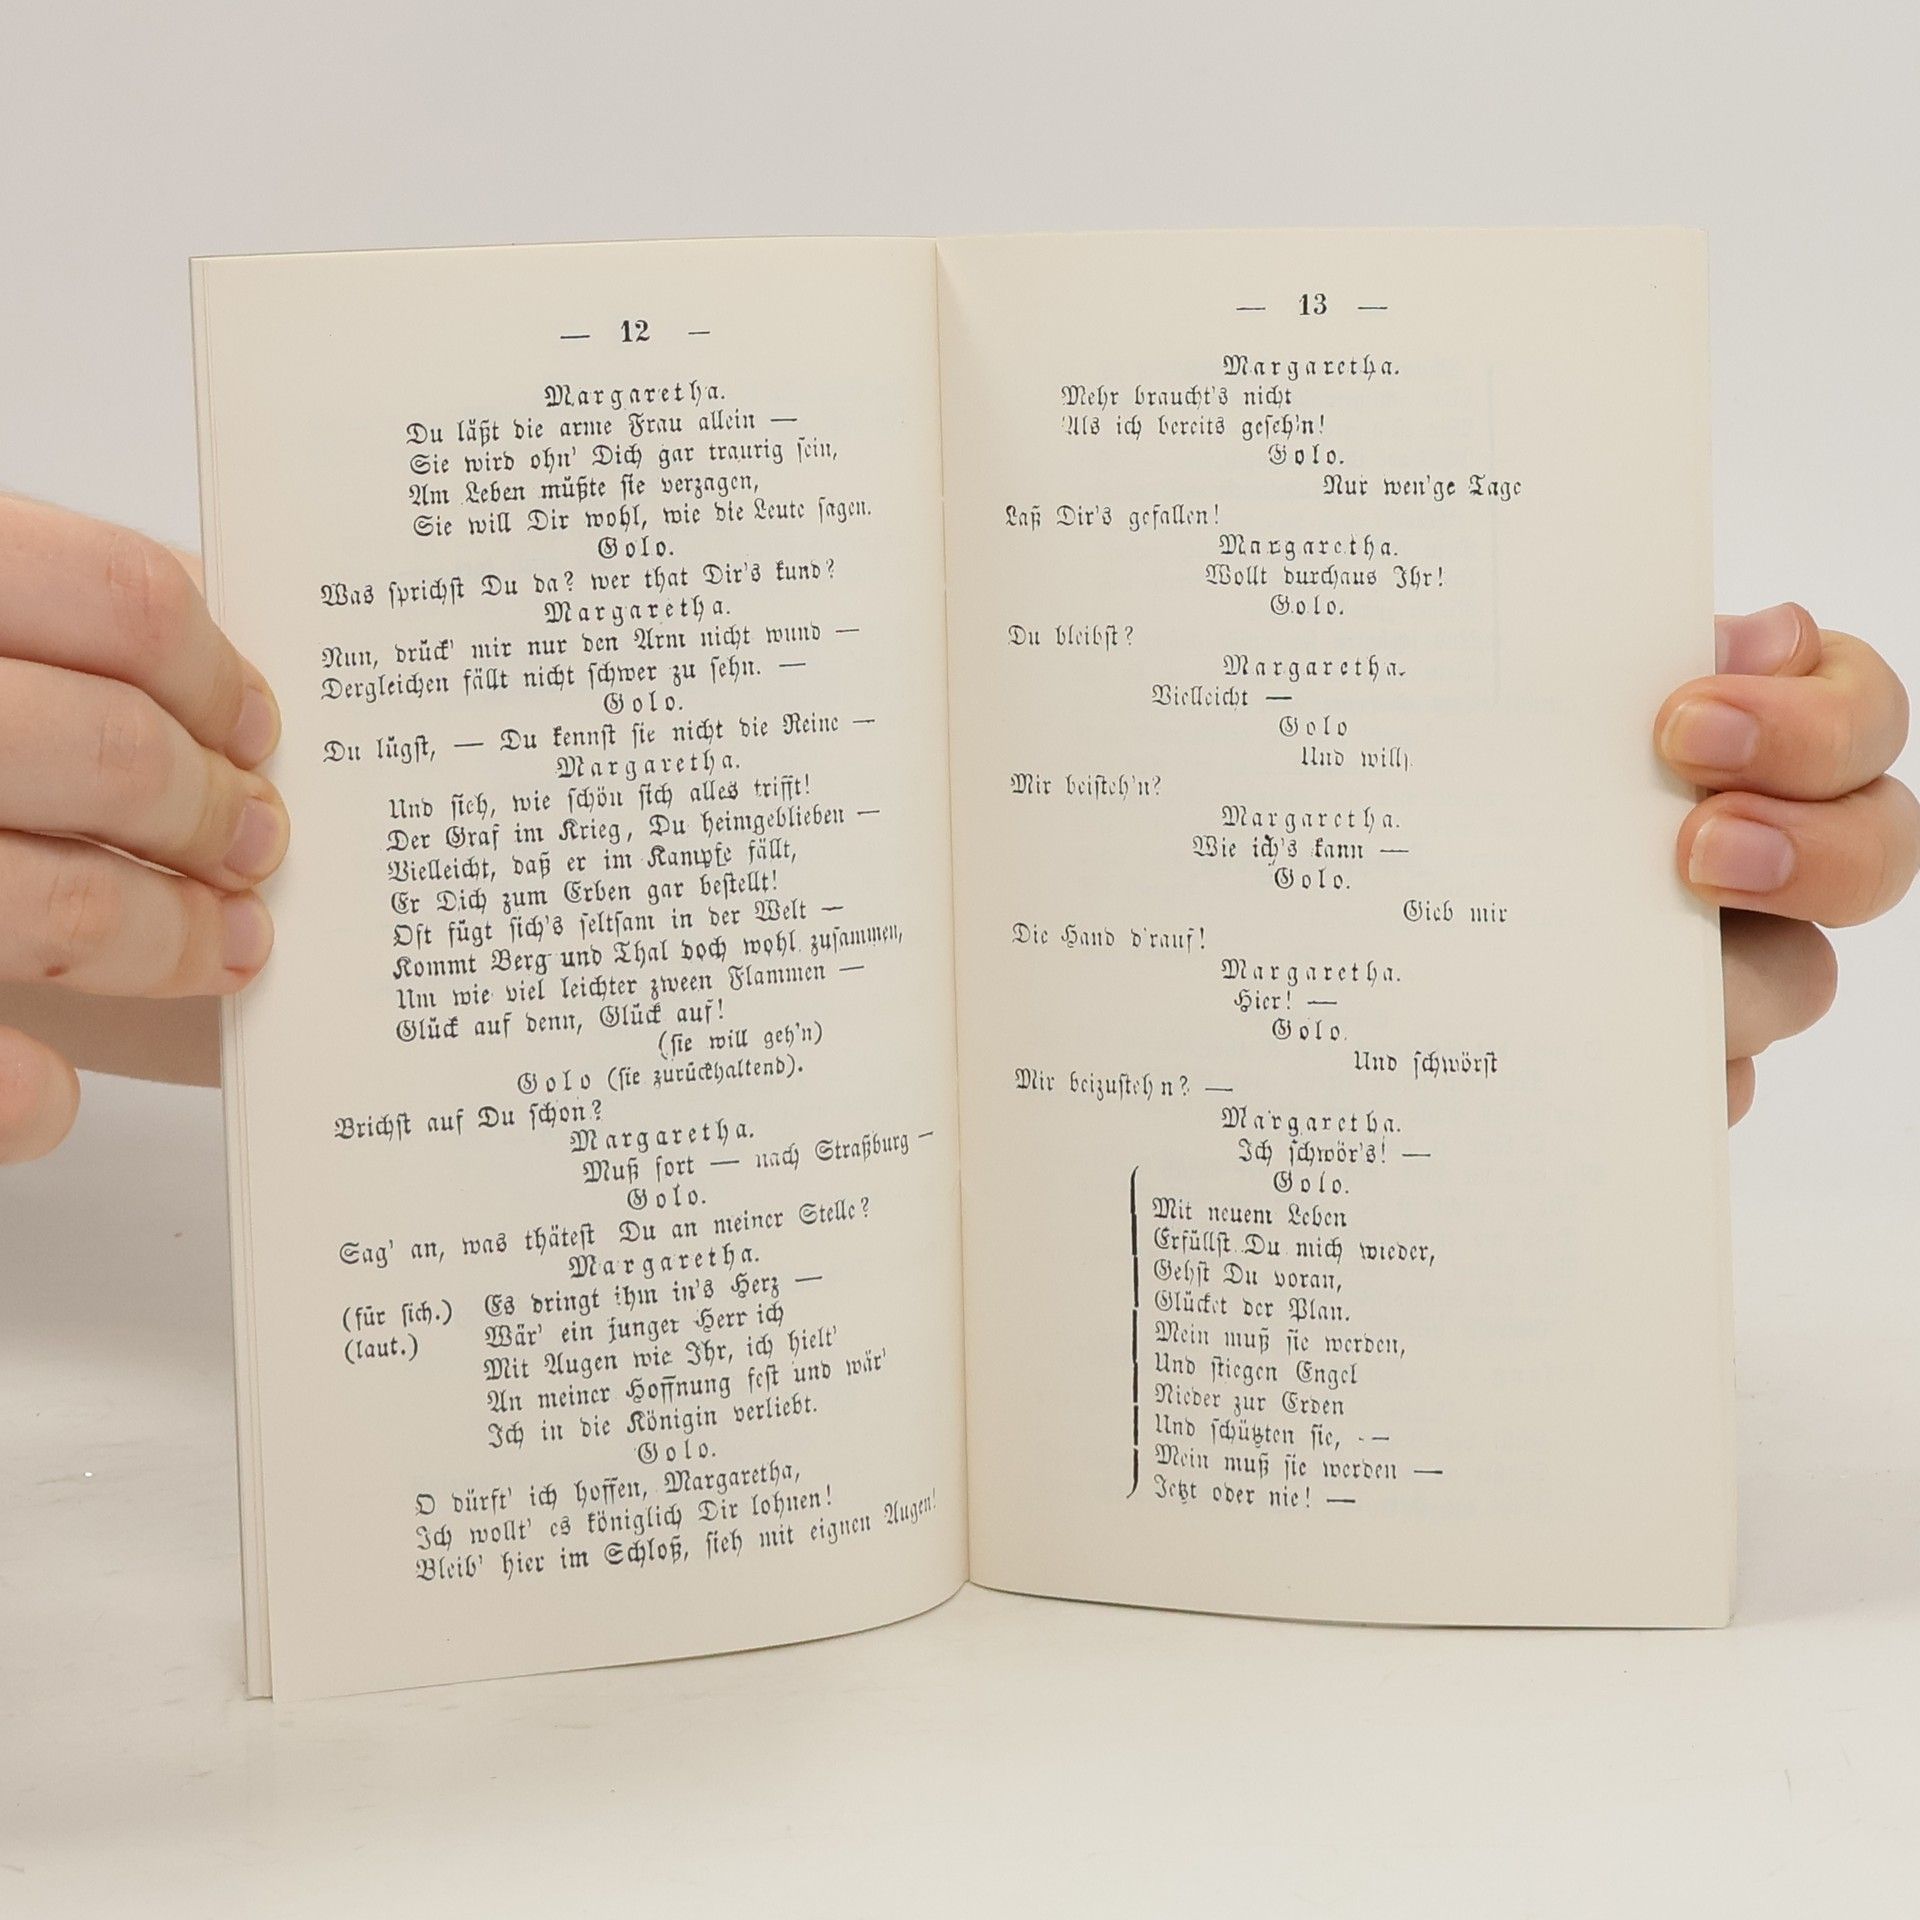 — 12 —
Margaretha.
Du läßt die arme Frau allein —
Sie wird ohn' Dich gar traurig sein,
Am Leben müßte sie verzagen,
Sie will Dir wohl, wie die Leute sagen.
Golo.
Was sprichst Du da? wer that Dir's kund?
Margaretha.
Nun, drück' mir nur den Arm nicht wund —
Dergleichen fällt nicht schwer zu sehn. —
Golo.
Du lügst, — Du kennst sie nicht die Reine —
Margaretha.
Und sieh, wie schön sich alles trifft!
Der Graf im Krieg, Du heimgeblieben —
Vielleicht, daß er im Kampfe fällt,
Er Dich zum Erben gar bestellt!
Oft fügt sich's seltsam in der Welt —
Kommt Berg und Thal doch wohl zusammen,
Um wie viel leichter zween Flammen —
Glück auf denn, Glück auf!
(sie will geh'n)
Golo (sie zurückhaltend).
Brichst auf Du schon?
Margaretha.
Muß fort — nach Straßburg —
Golo.
Sag' an, was thätest Du an meiner Stelle?
Margaretha.
(für sich.) Es dringt ihm in's Herz —
(laut.) Wär' ein junger Herr ich
Mit Augen wie Ihr, ich hielt'
An meiner Hoffnung fest und wär'
Ich in die Königin verliebt.
Golo.
O dürft' ich hoffen, Margaretha,
Ich wollt' es königlich Dir lohnen!
Bleib' hier im Schloß, sieh mit eignen Augen!
— 13 —
Margaretha.
Mehr braucht's nicht
Als ich bereits geseh'n!
Golo.
Nur wen'ge Tage
Laß Dir's gefallen!
Margaretha.
Wollt durchaus Ihr!
Golo.
Du bleibst?
Margaretha.
Vielleicht —
Golo
Und willst
Mir beisteh'n?
Margaretha.
Wie ich's kann —
Golo.
Gieb mir
Die Hand d'rauf!
Margaretha.
Hier! —
Golo.
Und schwörst
Mir beizusteh n? —
Margaretha.
Ich schwör's! —
Golo.
Mit neuem Leben
Erfüllst Du mich wieder,
Gehst Du voran,
Glücket der Plan.
Mein muß sie werden,
Und stiegen Engel
Nieder zur Erden
Und schützten sie, -—
Mein muß sie werden —
Jetzt oder nie! —